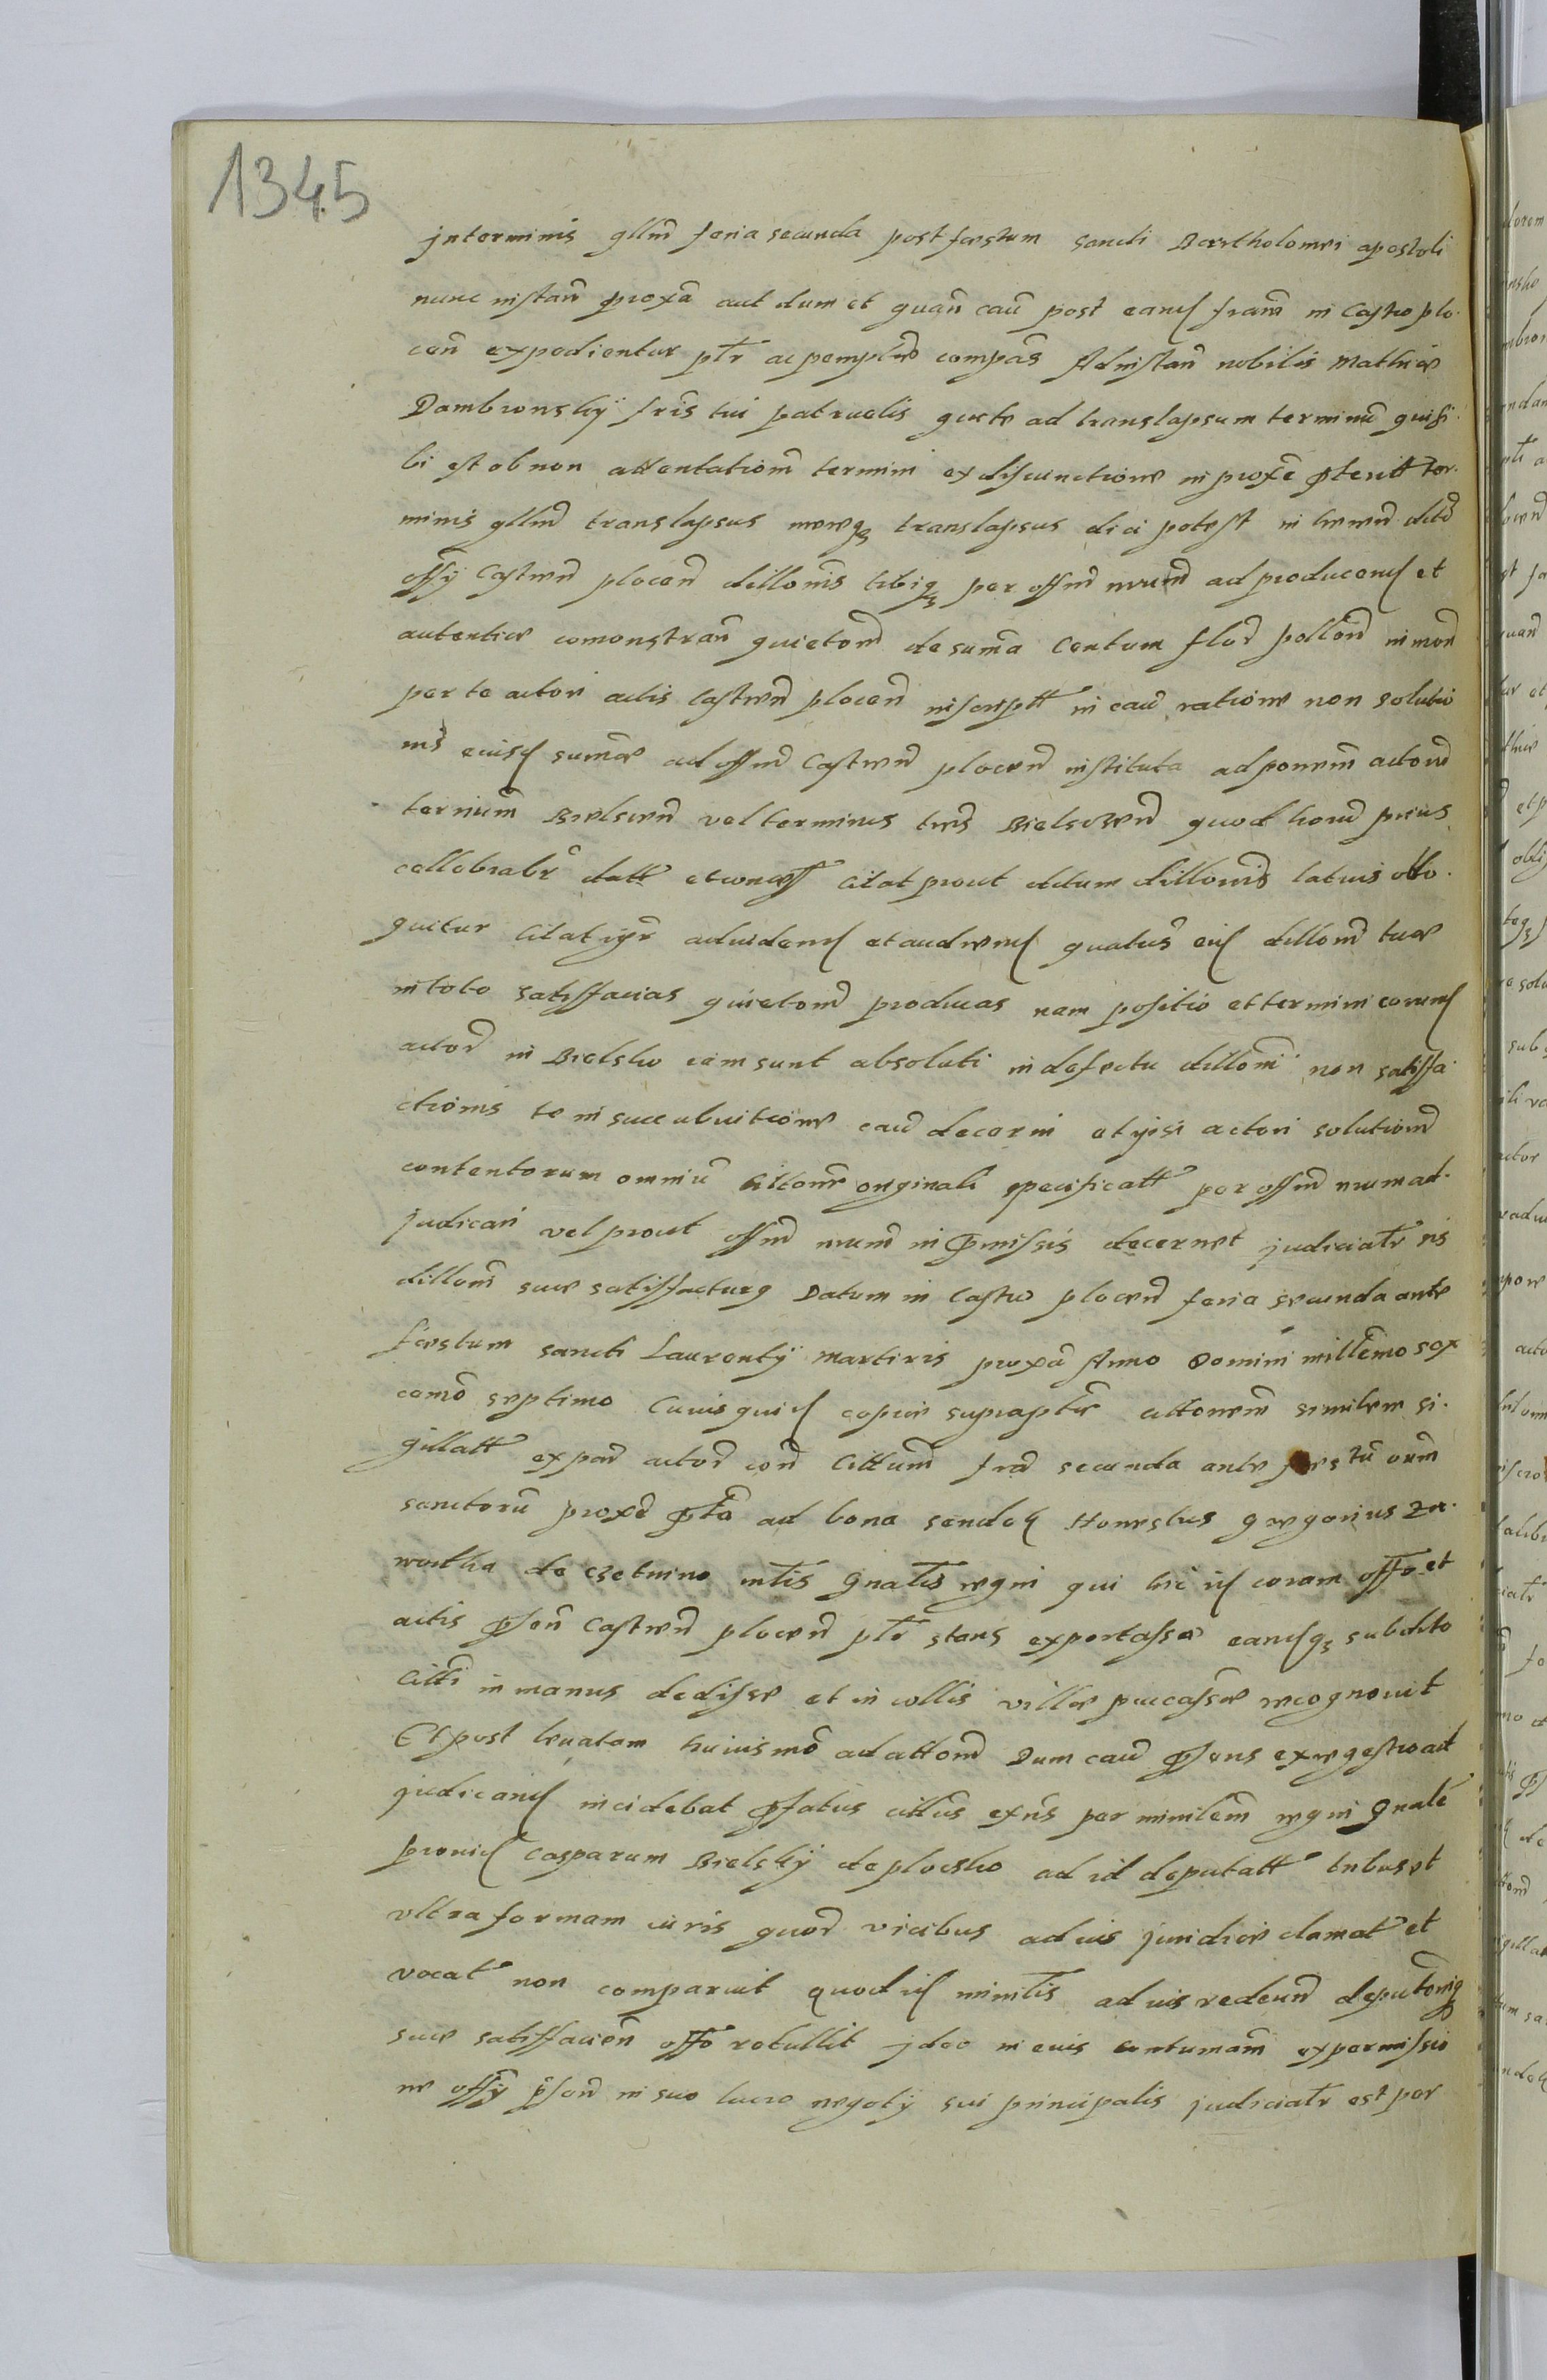 1345
jn terminis gllm̃ feria secunda post festum Sancti Bartholomei apostoli
nunc instañ proxã aut dum et quañ cau᷉ post eand᷉ frañ in Castro plo
ceñ expedientur ptr̃ ac pemptr̃ compãs Ad instañ nobilis Mathiæ
Dambronskÿ fris̃ tui patruelis qui te ad translapsum terminũ qui si
bi est ob non attentationẽ termini ex disiunctione in proxẽ pterit ter
minis gllm̃ translapsus neq᷉ translapsus dici potest in decreti
offÿ Castreñ ploceñ dillonis̃ tibiq᷉ per offm̃ nrum̃ ad producend᷉ et
autentice comonstrañ quietonẽ de suma Centum flor᷉ polloñ in moñ
per te actori actis Castreñ ploceñ inscript in cau᷉ ratione non solutio
nis eiusd᷉ sumæ ad offm̃ Castreñ ploceñ instituta ad ponenẽ actorẽ
terminũ Bielsceñ vel terminis tris̃ Bielsceñ quod horũ prius
cellebrabr̃ datt etconcess citat prout dictum dillonis̃ latius ello
quitur Citat igr̃ ad videnꝺ et audienꝺ quatus eid᷉ dilloni tuæ
in toto satisfacias quietonẽ producas nam positio et termini eorund᷉
actorũ in Bielsko iam sunt absoluti in defectu dilloni non satisfa
ctionis te in succubuitione cau᷉ decerni et ipsi actori solutionẽ
contentorum omniũ cittonẽ originali specificatt per offm̃ nrum ad
judicari vel prout offm̃ nrum̃ in pmissis decernet judicialr̃ eis
dilloni suæ satisfacturg Datum in Castro ploceñ feria secunda ante
festum sancti Laurentÿ Martiris proxã Anno Domini millemo sex
cemo septimo Cuiusquid᷉ copiæ suprapte cittonem similem si
gillatt ex par᷉ actor᷉ coñ Cittum̃ fra᷉ secunda ante festũ oum̃
sanctorũ proxẽ pta ad bona Sendek Honestus gregorius Zn
wortka de Czetnino mtis̃ Gnalis̃ regni qui hic id᷉ coram offo et
actis pseñ Castreñ ploceñ ptr̃ stans exportasse eandq᷉ subdito
citti in manus dedisse et in collis villæ publicasse recognouit
Et post leuatam huiusmõ ad attonẽ Dum cau᷉ psens ex regestro ad
judicanꝺ incidebat pfatus cittus exñs per ministem̃ regni gnalẽ
prouid᷉ Casparum Bielskÿ de plocsko ad id deputatt tribus et
vltra formam iuris quor᷉ vicibus ad ius juridice clamat et
vocat non comparuit quod id᷉ minstis̃ ad uis redeuñ deputoniq᷉
suæ satisfacieñ offo retullit jdeo in eius contumam̃ ex permissio
ne offÿ pseñ in suo lucro negotÿ sui principalis judicialr̃ est per